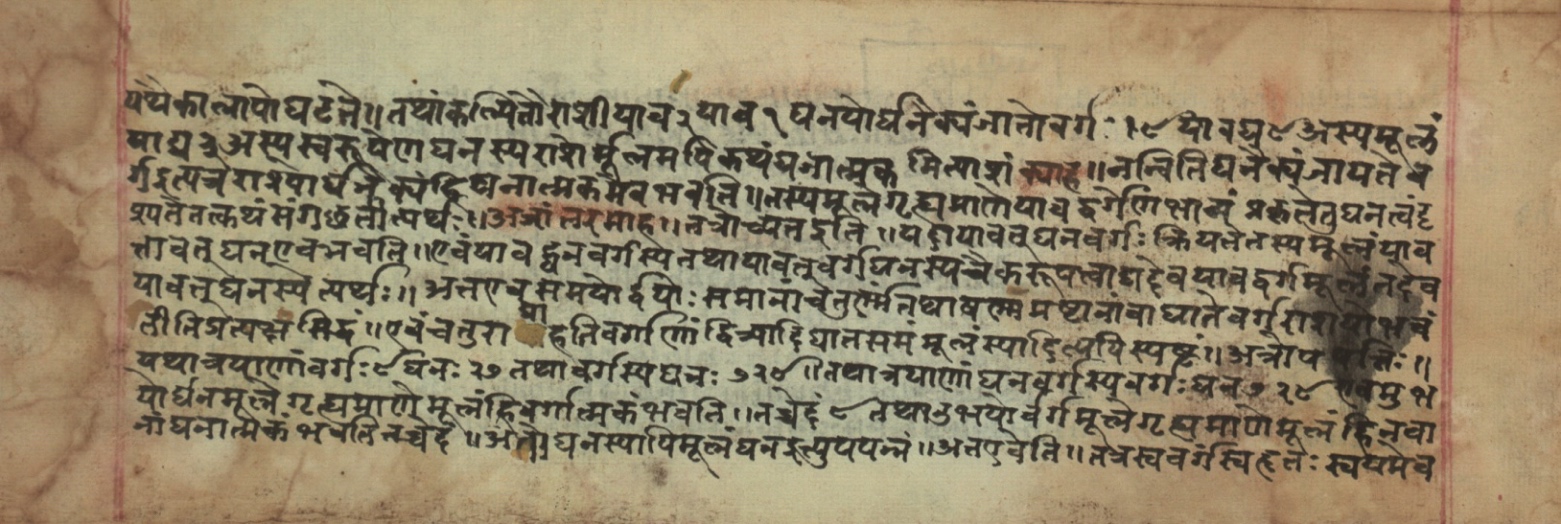 यथैकालापो घटते॥ तथा कल्पितो राशी याव २ याव १ घनयोर्घनैक्यं जातो वर्गः। ९ यावघ ९ अस्य मूलं
याघ ३ अस्य स्वरूपेण घनस्य राशेर्मूलमपि कथं घनात्मकमित्याशंक्याह॥ नन्विति घनैक्यं जायते व
र्ग इत्यत्र राश्योर्घनैक्यं हि घनात्मकमेव भवति॥ तस्य मूले गृह्यमाणे यावद्वर्गेण भाव्यं प्रकृते तु घनत्वं दृ
श्यते तत्कथं संगछतीत्यर्थः॥ अत्रोत्तरमाह॥ तत्रोच्यत इति॥ यदा यावत् घनवर्गः क्रियते तस्य मूलं याव
त्तावत् घन एव भवति॥ एवं यावद्घनवर्गस्य तथा यावत् वर्गघनस्य चैकरूपत्वाद्यदेव यावद्वर्गमूलं तदेव
यावत् घनस्येत्यर्थः॥ अतएव समयोर्द्वयोः समानां चतुर्णां तथा षण्णामष्टानां वा घाते वर्गराशयो भवं
तीति गत्पन्न सिद्धं॥ एवं चतुरा हतिवर्गाणां द्वित्र्यादिघातसमं मूलं स्यादित्यपि स्पष्टं॥ अत्रोपपत्तिः॥
यथा त्रयाणां वर्गः ९ घनः २७ तथा वर्गस्य घनः ७२९॥ तथा त्रयाणां घनवर्गस्य वर्गः घन ७२९ एवमुभ
योर्घनमूले गृह्यमाणे मूलं हि वर्गात्मकं भवति॥ तच्चेदं ९ तथा उभयोर्वर्गमूले गृह्यमाणे मूलं हि नवा
नां घनात्मकं भवति तच्चेदं॥ अतो घनस्यापि मूलं घन इत्युपपन्नं॥ अतएवेति॥ तत्र स्ववर्गस्त्रिहृतः स्वयमेव